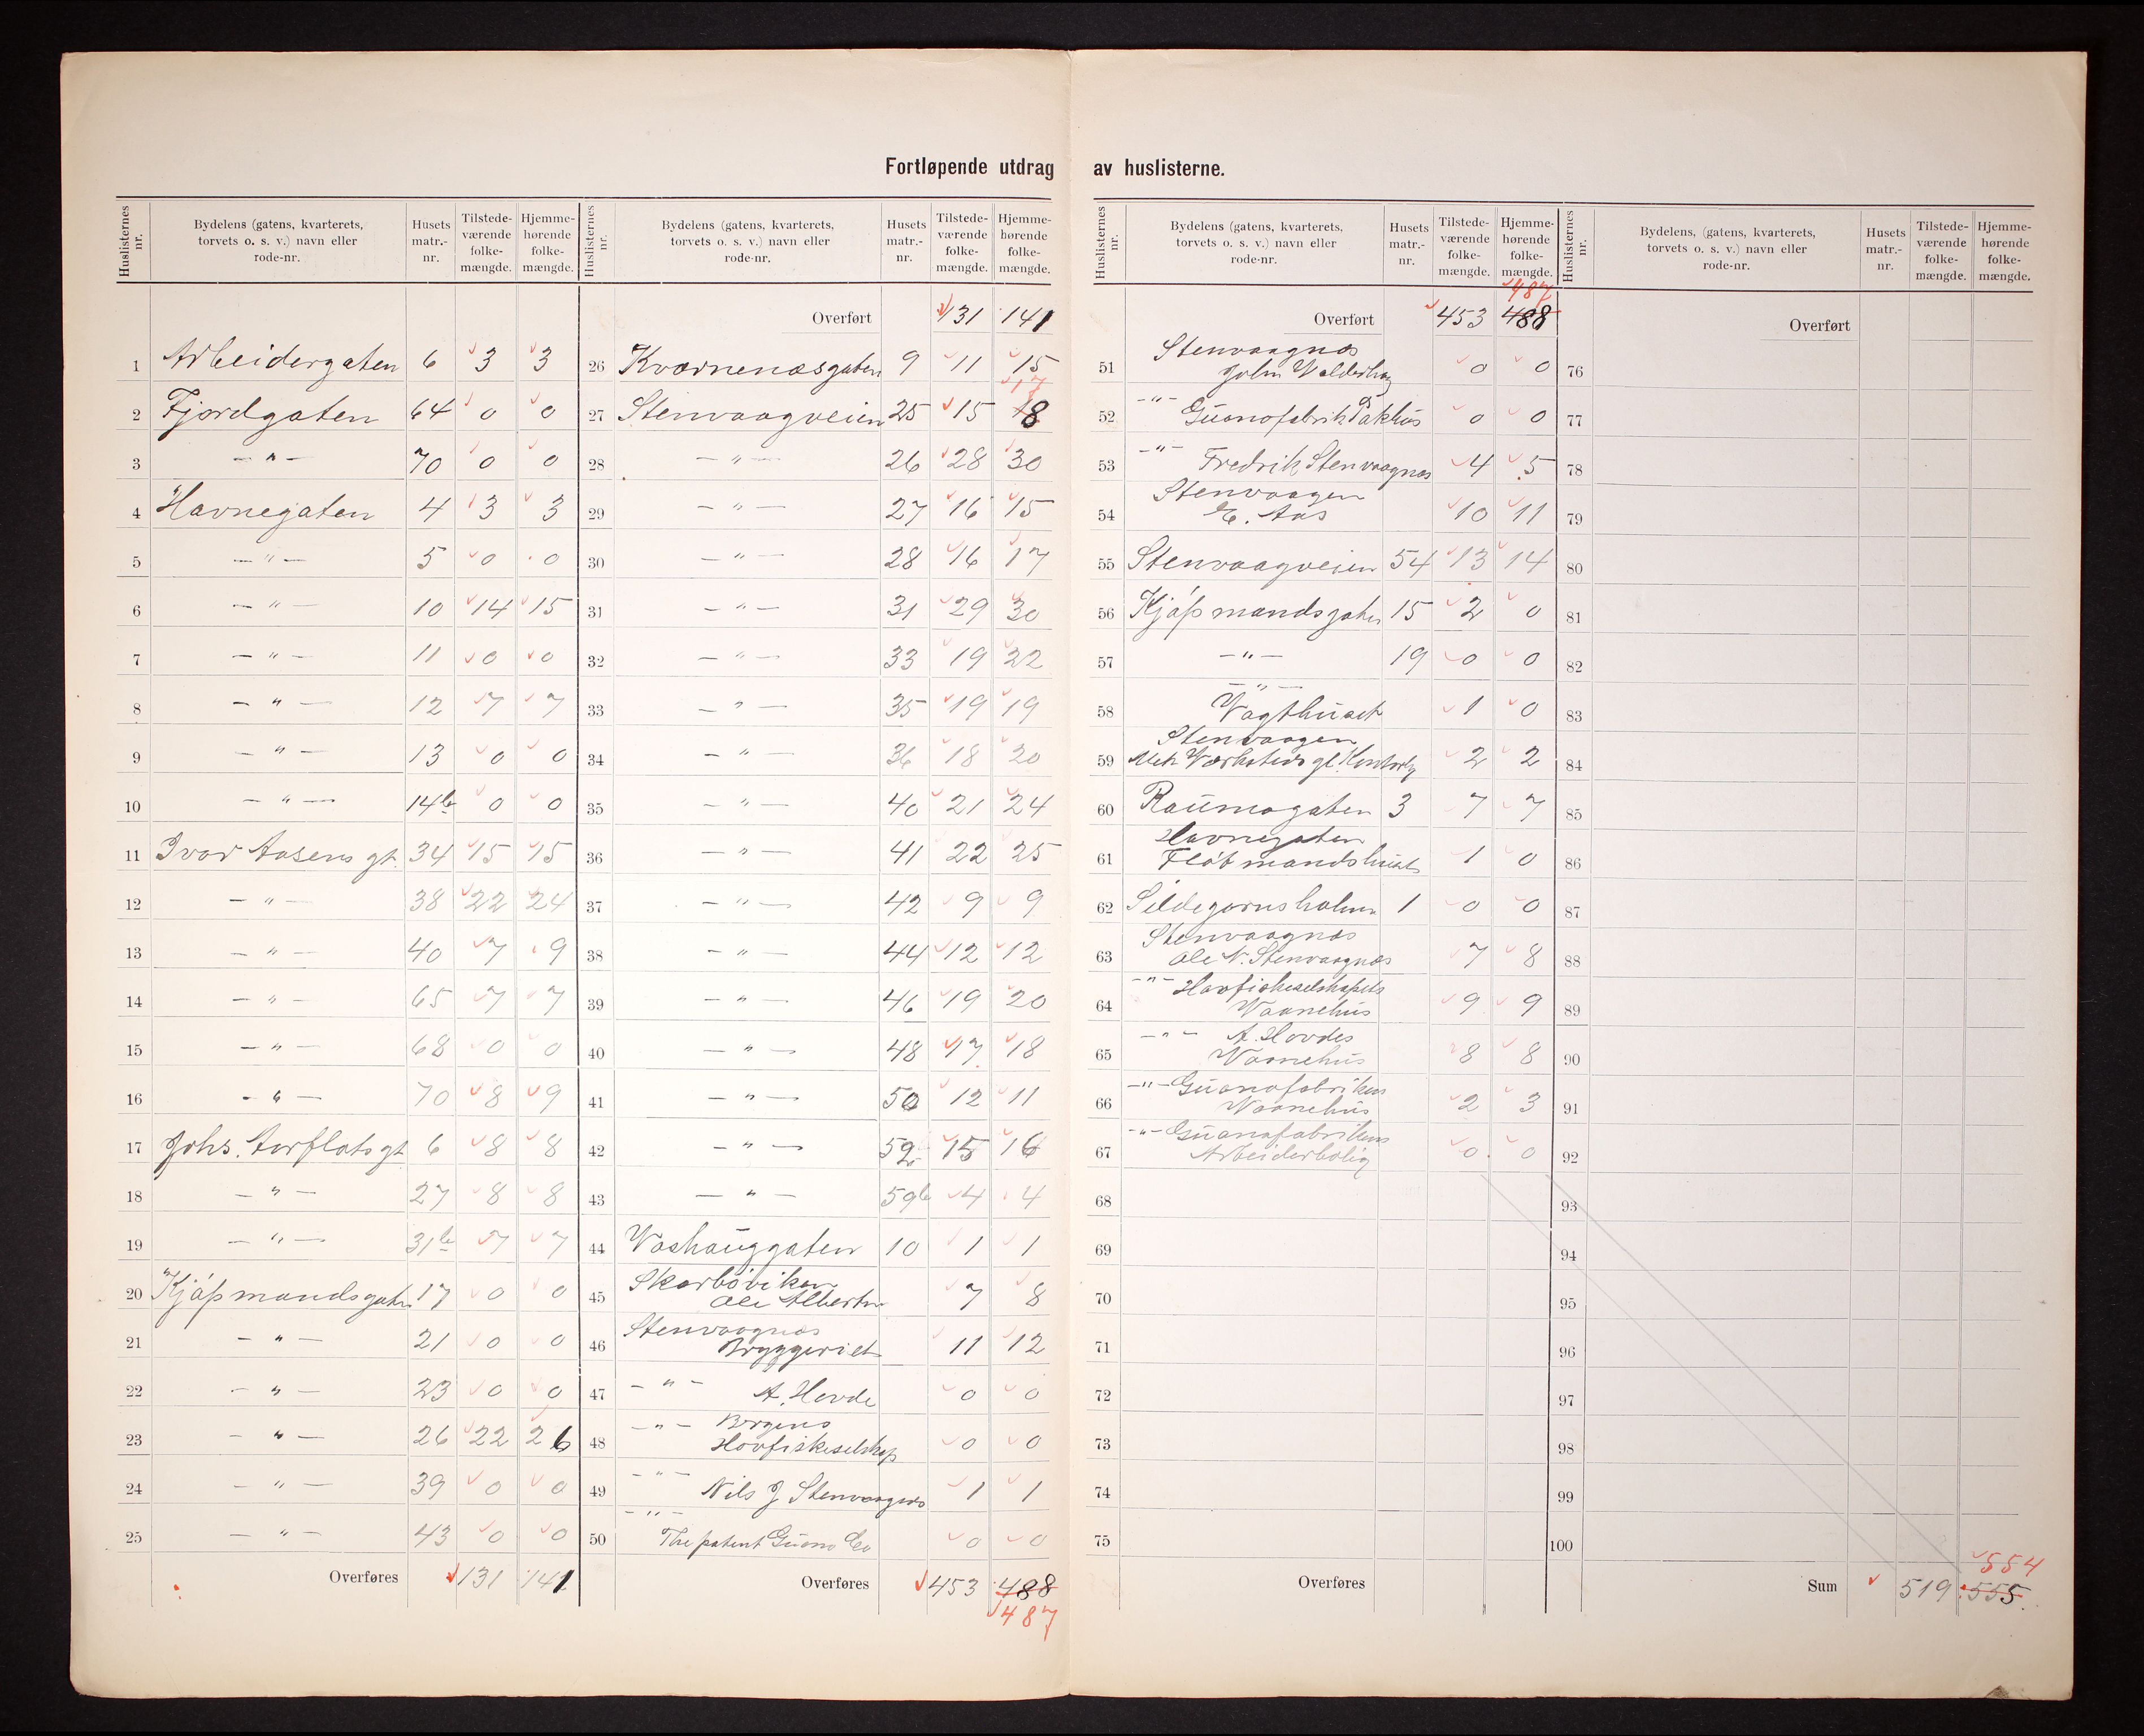 Fortløpende utdrag av huslisterne.
Huslisternes nr. Bydelens (gatens, kvarterets, torvets o. s. v.) navn eller rode-nr. Husets matr.-nr. Tilstede-værende folke-mængde. Hjemme-hørende folke-mængde.
1 Arbeidergaten 6 3 3
2 Fjordgaten 64 0 0
3 — " — 70 0 0
4 Havnegaten 4 3 3
5 — " — 5 0 0
6 — " — 10 14 15
7 — " — 11 0 0
8 — " — 12 7 7
9 — " — 13 0 0
10 — " — 14b 0 0
11 Ivar Aasens gt. 34 15 15
12 — " — 38 22 24
13 — " — 40 7 9
14 — " — 65 7 7
15 — " — 68 0 0
16 — " — 70 8 9
17 Johs. Aarflots gt 6 8 8
18 — " — 27 8 8
19 — " — 31b 7 7
20 Kjøpmandsgaten 17 0 0
21 — " — 21 0 0
22 — " — 23 0 0
23 — " — 26 22 26
24 — " — 39 0 0
25 — " — 43 0 0
Overføres 131 141
Huslisternes nr. Bydelens (gatens, kvarterets, torvets o. s. v.) navn eller rode-nr. Husets matr.-nr. Tilstede-værende folke-mængde. Hjemme-hørende folke-mængde.
Overført 131 141
26 Kværnenæsgaten 9 11 15
17
27 Stenvaagveien 25 15 18
28 — " — 26 28 30
29 — " — 27 16 15
30 — " — 28 16 17
31 — " — 31 29 30
32 — " — 33 19 22
33 — " — 35 19 19
34 — " — 36 18 20
35 — " — 40 21 24
36 — " — 41 22 25
37 — " — 42 9 9
38 — " — 44 12 12
39 — " — 46 19 20
40 — " — 48 17 18
41 — " — 50 12 11
42 — " — 52 15 16
43 — " — 59b 4 4
44 Vashauggaten 10 1 1
45 Skarbøviken
Ole Albertsen 7 8
46 Stenvaagnæs
Bryggeriet 11 12
47 — " — A. Hovde 0 0
48 — " — Borgens
Havfiskeselskap 0 0
49 — " —
Nils J Stenvaagnæs 1 1
50 — " —
The patent Guano Co 0 0
Overføres 453 488
487
Huslisternes nr. Bydelens (gatens, kvarterets, torvets o. s. v.) navn eller rode-nr. Husets matr.-nr. Tilstede-værende folke-mængde. Hjemme-hørende folke-mængde.
487
Overført 453 488
51 Stenvaagnæs
John Valderhaug 0 0
52 — " — Guanofabrik Pakhus 0 0
53 — " — Fredrik Stenvaagnæs 4 5
54 Stenvaagen
E. Aas 10 11
55 Stenvaagveien 54 13 14
56 Kjøpmandsgaten 15 2 0
57 — " — 19 0 0
58 — " —
Vagthuset 1 0
59 Stenvaagen
Mek Værksteds gl. Kontorb 2 2
60 Raumagaten 3 7 7
61 Havnegaten
Fløtmandshuset 1 0
62 Sildegarnsholmen 1 0 0
63 Stenvaagnæs
Ole N. Stenvaagnæs 7 8
64 — " — Havfiskeselskapets
Vaanehus 9 9
65 — " — A. Hovdes
Vaanehus 8 8
66 — " — Guanofabrikens
Vaanehus 2 3
67 — " — Guanofabrikens
Arbeiderbolig 0 0
68
69
70
71
72
73
74
75
Overføres
Huslisternes nr. Bydelens, (gatens, kvarterets, torvets o. s. v.) navn eller rode-nr. Husets matr.-nr. Tilstede-værende folke-mængde. Hjemme-hørende folke-mængde.
Overført
76
77
78
79
80
81
82
83
84
85
86
87
88
89
90
91
92
93
94
95
96
97
98
99
100
554
Sum 519 555